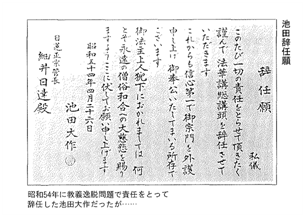 池田辞任願
辞任願
私儀
このたび一切の責任をとらせて頂きたく、
謹んで法華講総講頭を辞任させて
いただきます
これからも信心第一で御宗門を外護
申し上げ御奉公いたしてまいる所存で
御法主上人猊下におかれましては何
とぞ永遠の僧俗和合への大慈悲を賜り
ますようここに伏してお願い申し上げます
昭和五十四年四月二十六日
池田大作
日蓮正宗管長
細井日達殿
昭和54年に教義逸脱問題で責任をとって
辞任した池田大作だったが……